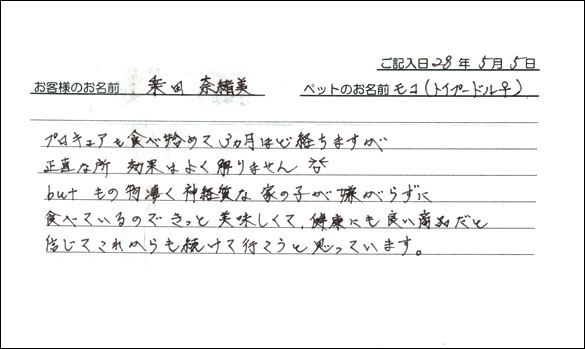 ご記入日 28 年 5 月 5 日
お客様のお名前 柴田 奈緒美 ペットのお名前 モコ(トイプードル♀)
プロキュアも食べ始めて3ヵ月ほど経ちますが
正直な所 効果はよく解りません
but もの物凄く神経質な家の子が嫌がらずに
食べているのできっと美味しくて、健康にも良い商品だと
信じてこれからも続けて行こうと思っています。